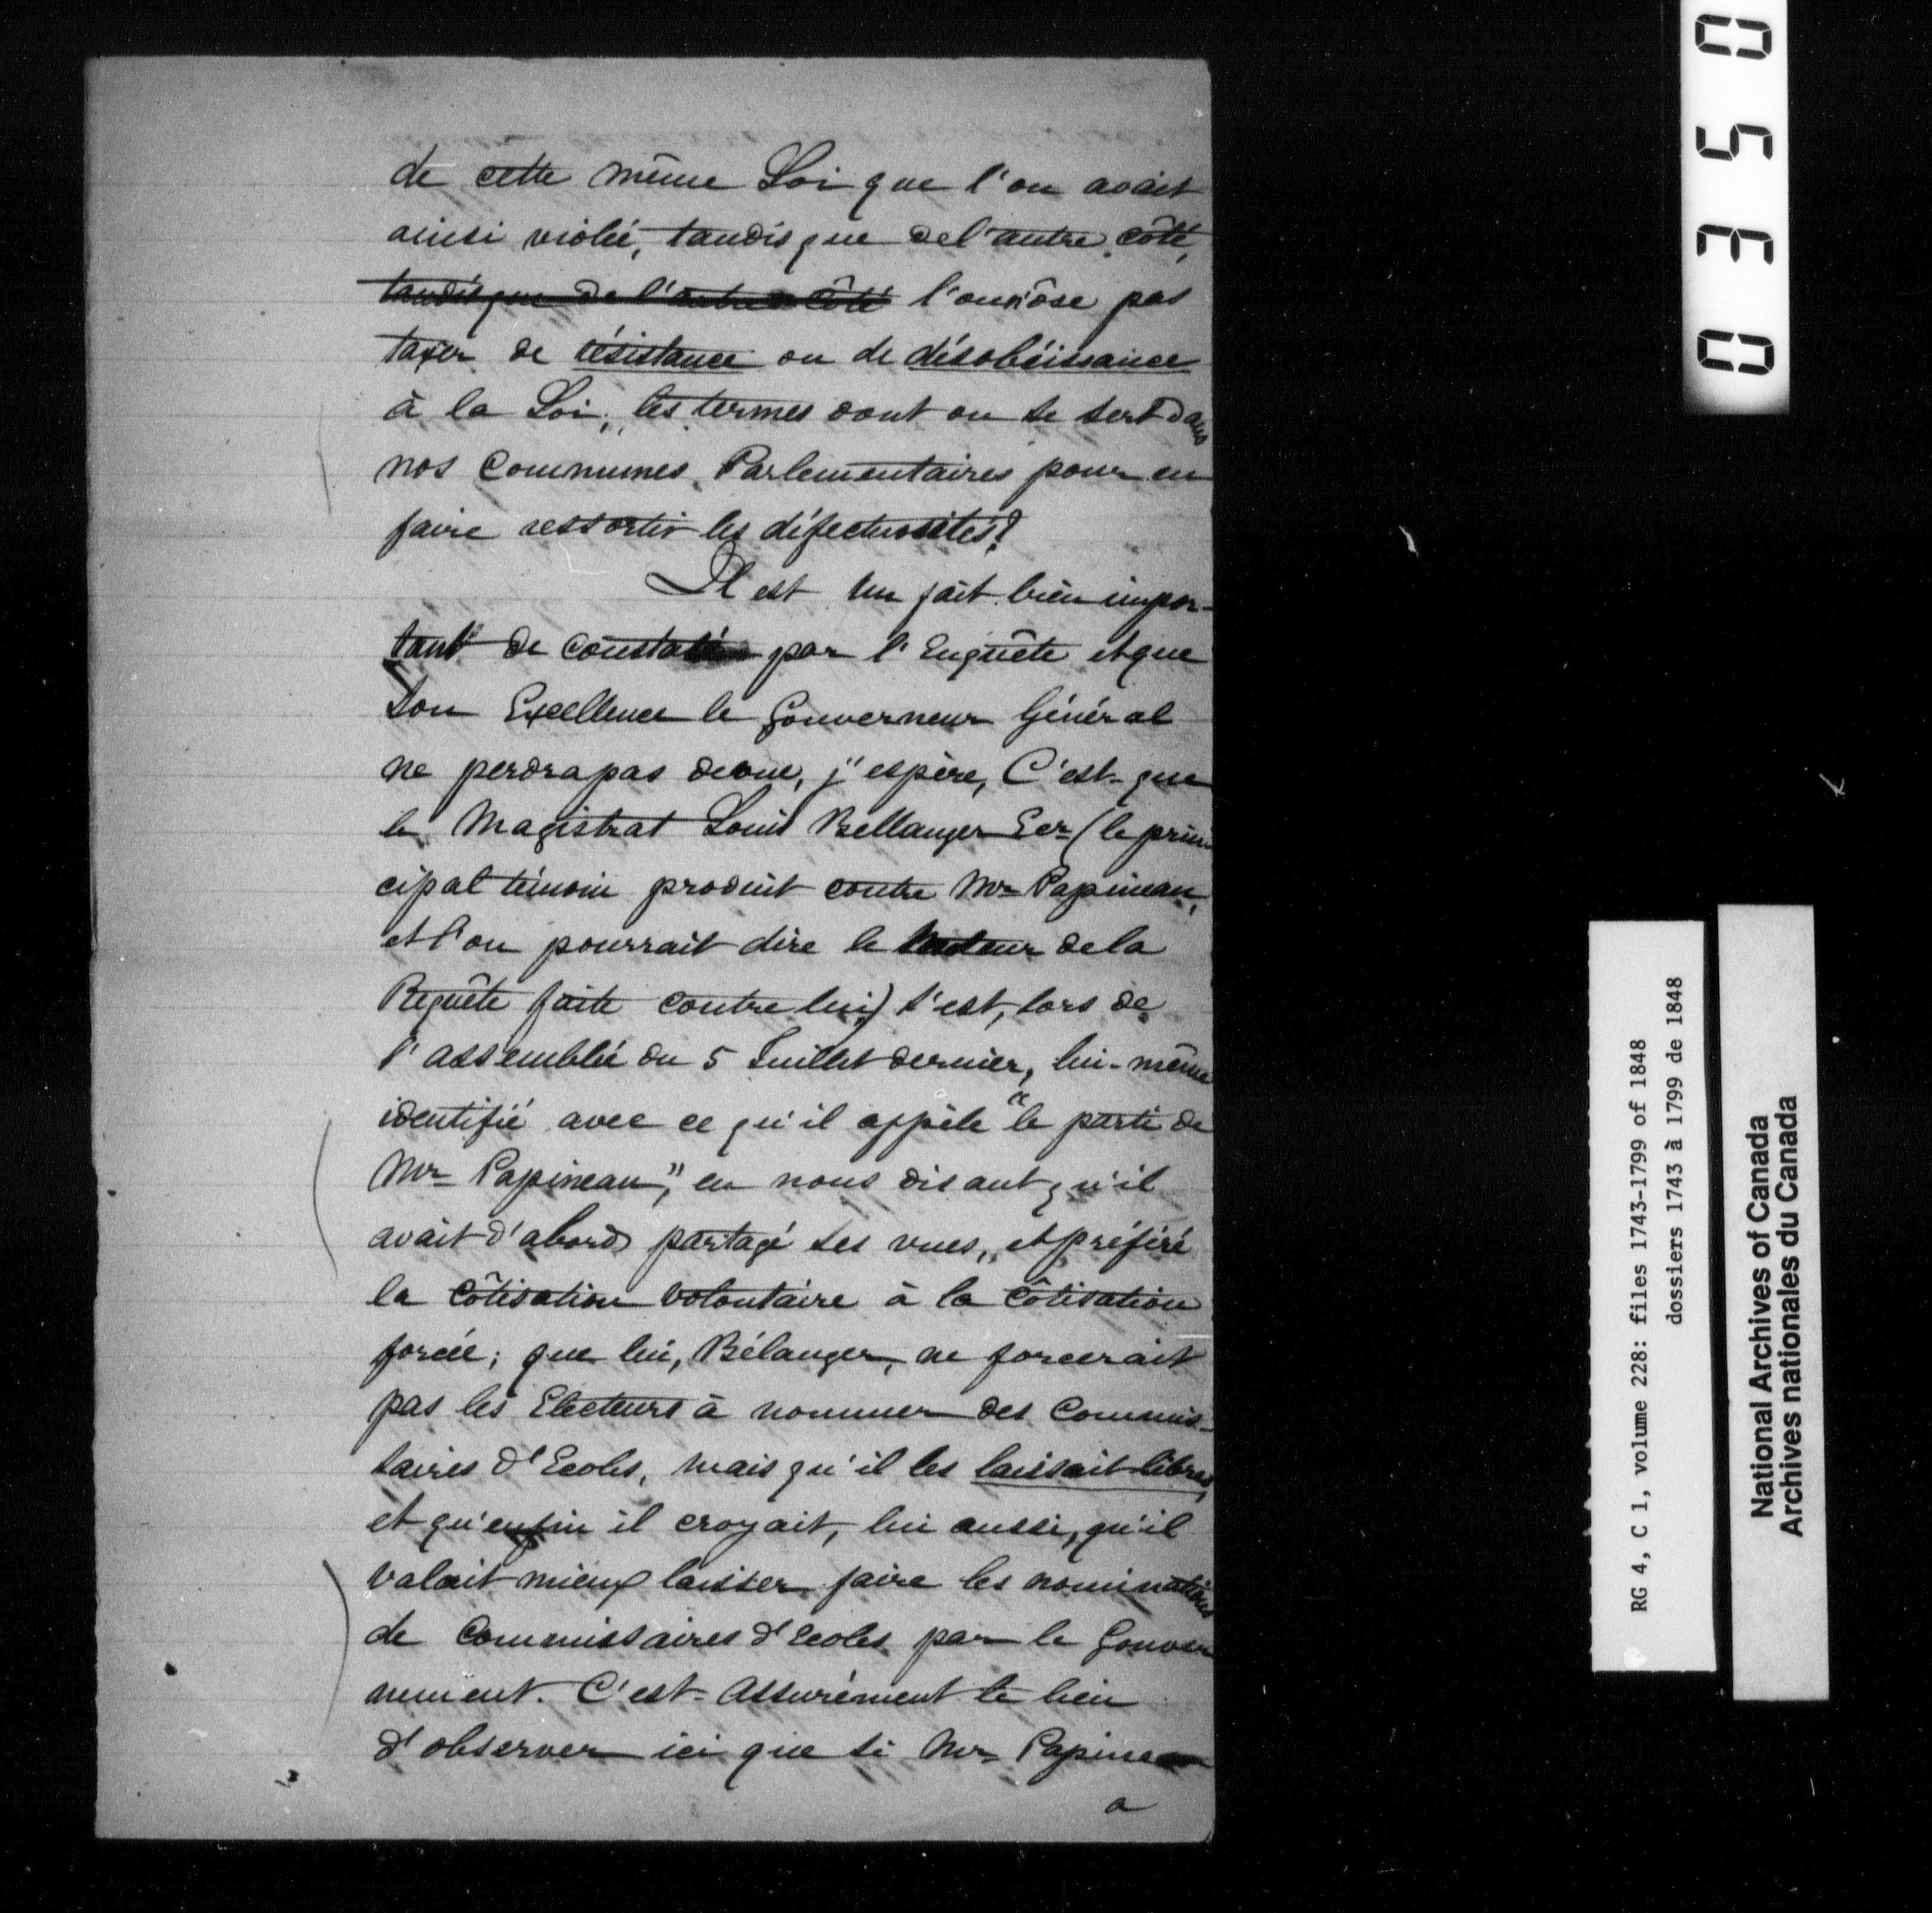 de cette même Loi que l'on avait
ainsi violée, tandisque de l'autre côté,
tandisque de l'autre côté l'on n'ôse pas
taxer de résistance ou de désobéissance
à la Loi, les termes dont on se sert dans
nos Communes Parlementaires pour en
faire ressortir les défectuosités?
Il est un fait bien impor-
tant de constaté par l'Enquête et que
Son Excellence le Gouverneur Général
ne perdra pas de vue, j'espère, C'est que
le Magistrat Louis Bellanger Ecr (le prin
cipal témoin produit contre Mr Papineau,
et l'on pourrait dire le de la
Requête faite contre lui,) s'est, lors de
l'assemblée du 5 Juillet dernier, lui-même
identifié avec ce qu'il appèle "le parti de
Mr Papineau," en nous disant qu'il
avait d'abord partagé ses vues, et préféré
la côtisation volontaire à la côtisation
forcée; que lui, Bélanger, ne forcerait
pas les Electeurs à nommer des Commis-
saires d'Ecoles, mais qu'il les laissait libres,
et qu'enfin il croyait, lui aussi, qu'il
valait mieux laisser faire les nominations
de Commissaires d'Ecoles par le Gouver
nement. C'est assurément le lieu
d'observer ici que si Mr Papineau
a
0350
RG 4, C 1, volume 228: files 1743-1799 of 1848
dossiers 1743 à 1799 de 1848
National Archives of Canada
Archives nationales du Canada